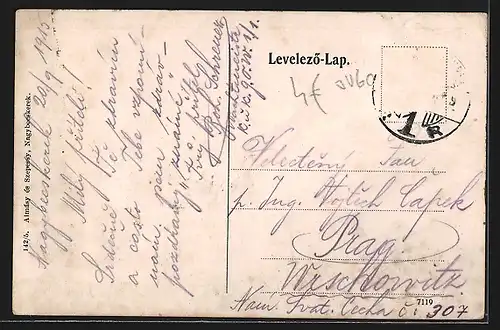 Levelező-Lap.
4€ AV60
142/5. Almásy és Szepesy, Nagybecskerek.
Nagybecskerek 20/9 1915
Milý příteli!
Srdečně Tě zdravím
a často Tebe vzpomí-
nám. Jsem zdráv
pozdravuj známé
Tvůj přítel
Velectěný Pan
p. Ing. Vojtěch Čapek
Prag
Wrschowitz
Nám. Svat. Čecha č. 307
7119
1